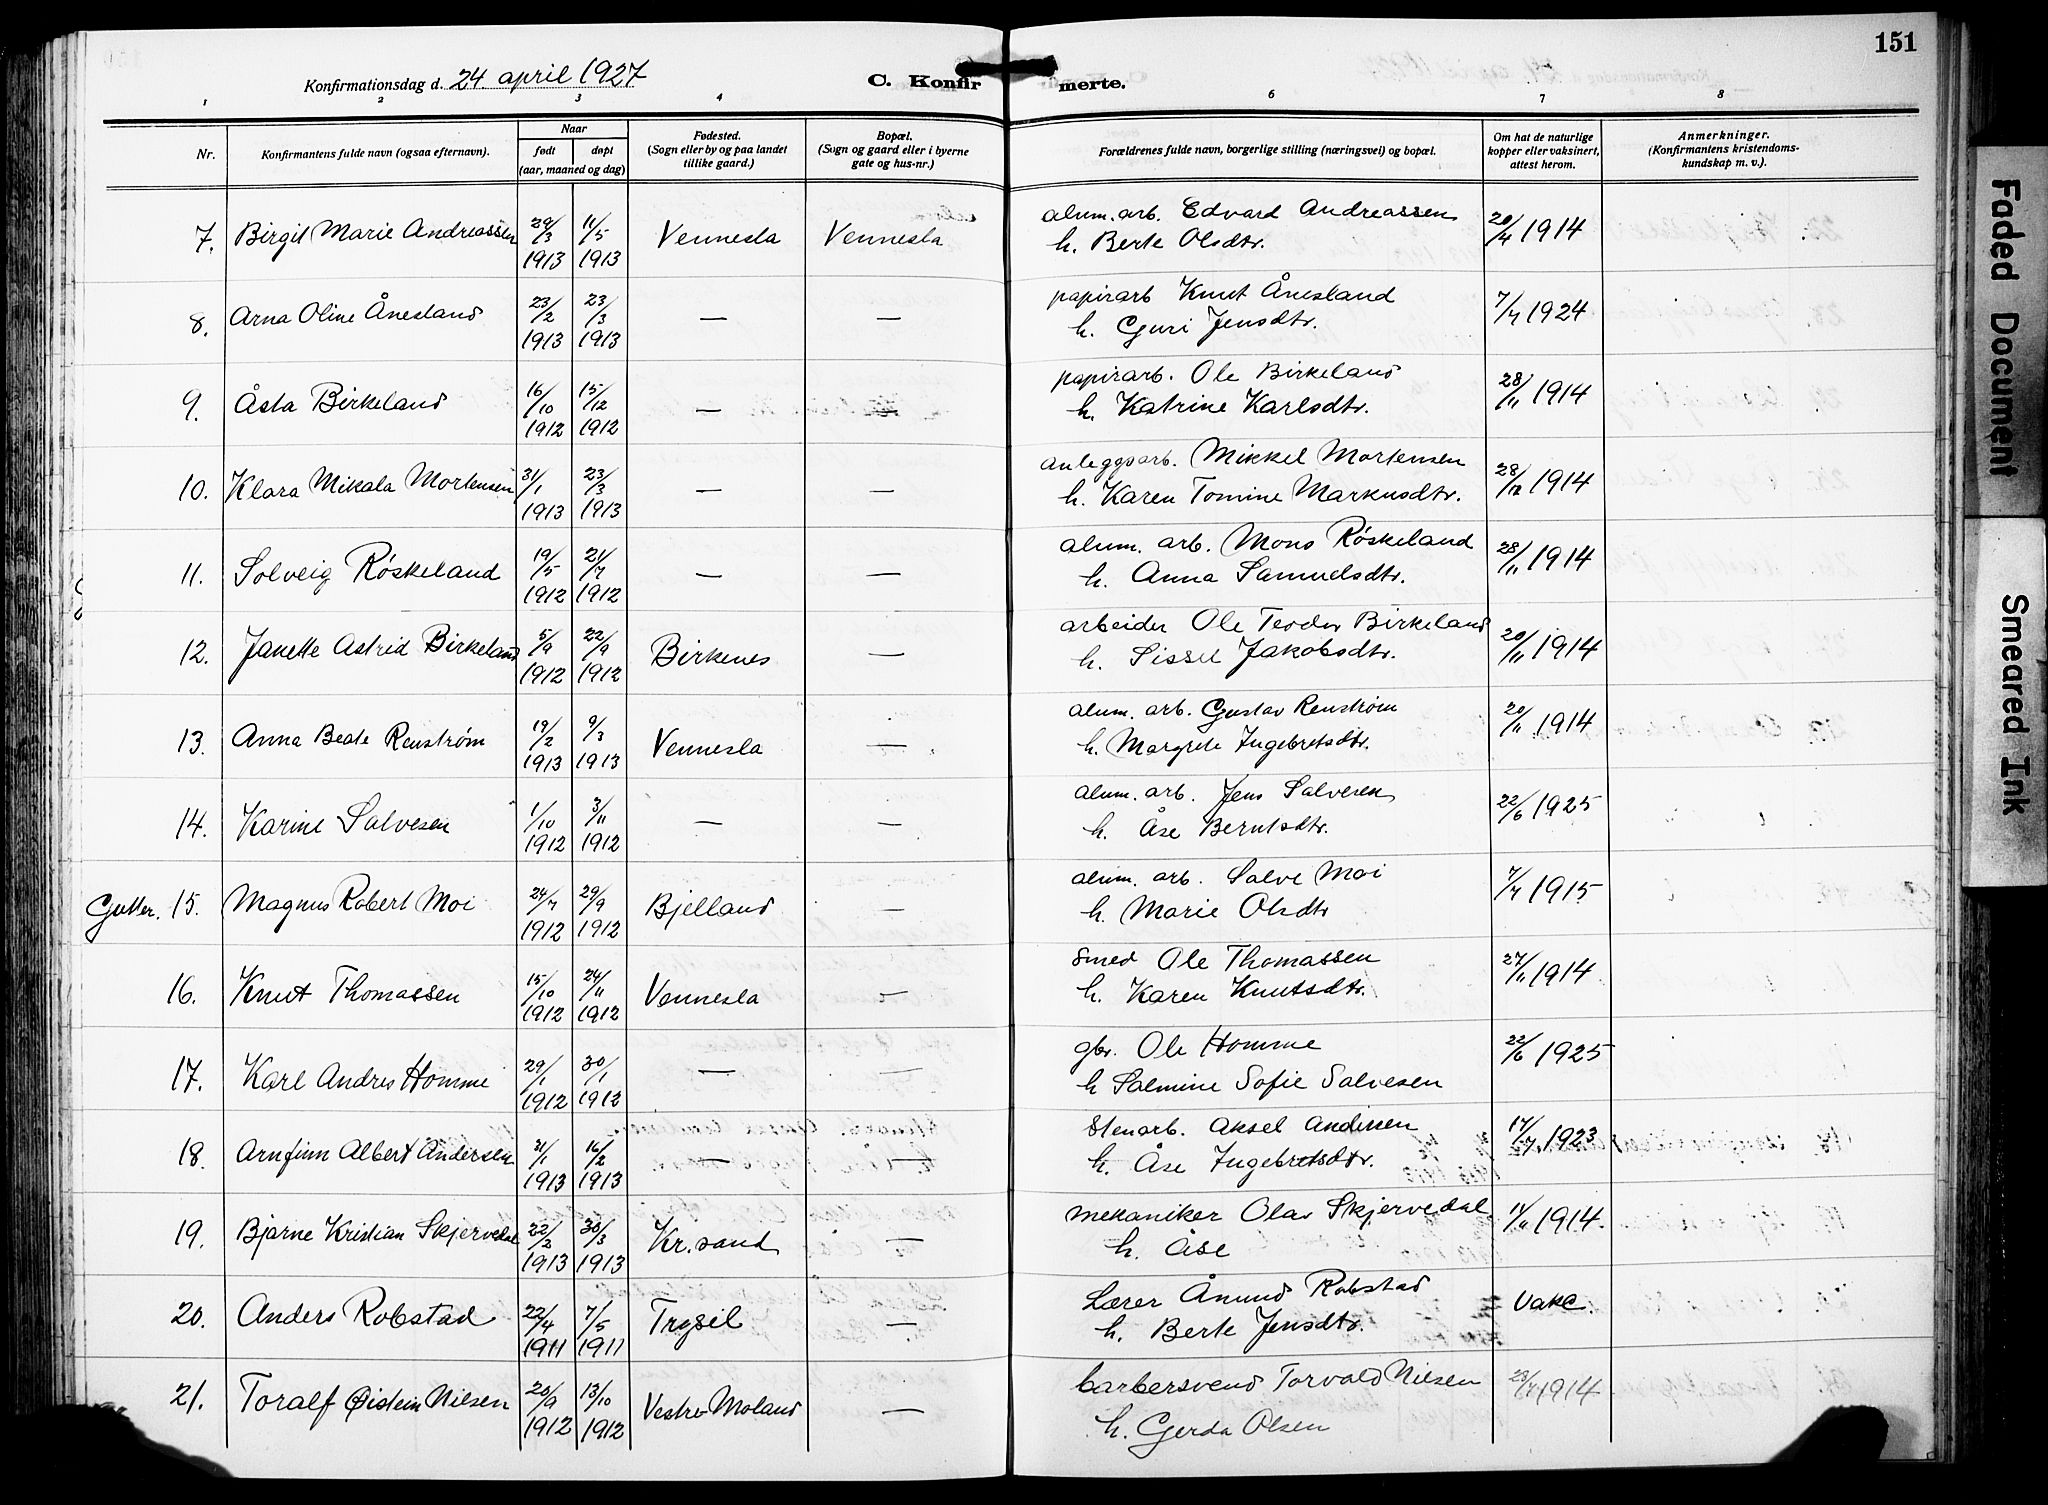 151
Konfirmationsdag d. 24. april 1927
C. Konfirmerte.
1 2 3 4 5 6 7 8
Nr.
Konfirmantens fulde navn (ogsaa efternavn).
Naar
født
døpt
(aar, maaned og dag)
Fødested.
(Sogn eller by og paa landet
tillike gaard.)
Bopæl.
(Sogn og gaard eller i byerne
gate og hus-nr.)
Forældrenes fulde navn, borgerlige stilling (næringsvei) og bopæl.
Om hat de naturlige
kopper eller vaksinert,
attest herom.
Anmerkninger.
(Konfirmantens kristendoms-
kundskap m. v.).
7. Birgit Marie Andreassen 29/3 1913 11/5 1913 Vennesla Vennesla alum. arb. Edvard Andreassen 20/4 1914
h. Berte Olsdtr.
8. Arna Oline Ånesland 23/2 1913 23/3 1913 — — papirarb Knut Ånesland 7/7 1924
h. Guri Jensdtr.
9. Åsta Birkeland 16/10 1912 15/12 1912 — — papirarb. Ole Birkeland 28/11 1914
h. Katrine Karlsdtr.
10. Klara Mikala Mortensen 31/1 1913 23/3 1913 — — anleggsarb. Mikkel Mortensen 28/12 1914
h. Karen Tomine Markusdtr.
11. Solveig Røskeland 19/5 1912 21/7 1912 — — alum. arb. Mons Røskeland 28/11 1914
h. Anna Samuelsdtr.
12. Janette Astrid Birkeland 5/9 1912 22/9 1912 Birkenes — arbeider Ole Teodor Birkeland 20/11 1914
h. Sissel Jakobsdtr.
13. Anna Beate Renstrøm 19/2 1913 9/3 1913 Vennesla — alum. arb. Gustav Renstrøm 20/11 1914
h. Margrete Ingebretsdtr.
14. Karine Salvesen 1/10 1912 3/11 1912 — — alum. arb. Jens Salvesen 22/6 1925
h. Åse Berntsdtr.
Gutter. 15. Magnus Robert Moi 24/7 1912 29/9 1912 Bjelland — alum. arb. Salve Moi 7/7 1915
h. Marie Olsdtr
16. Knut Thomassen 15/10 1912 24/11 1912 Vennesla — Smed Ole Thomassen 27/11 1914
h. Karen Knutsdtr.
17. Karl Andres Homme 29/1 1912 30/1 1912 — — gbr. Ole Homme 22/6 1925
h Salmine Sofie Salvesen
18. Arnfinn Albert Andersen 31/1 1913 16/2 1913 — — Stenarb. Aksel Andersen 17/7 1923
h. Åse Ingebretsdtr.
19. Bjarne Kristian Skjervedal 22/2 1913 30/3 1913 Kr.sand — mekaniker Olav Skjervedal 14/11 1914.
h. Åse
20. Anders Robstad 22/4 1911 7/5 1911 Trysil — Lærer Åmund Robstad vakc.
h. Berte Jensdtr.
21. Toralf Øistein Nilsen 20/9 1912 13/10 1912 Vestre Moland — barbersvend Torvald Nilsen 23/7 1914
h. Gerda Olsen
Faded Document
Smeared Ink